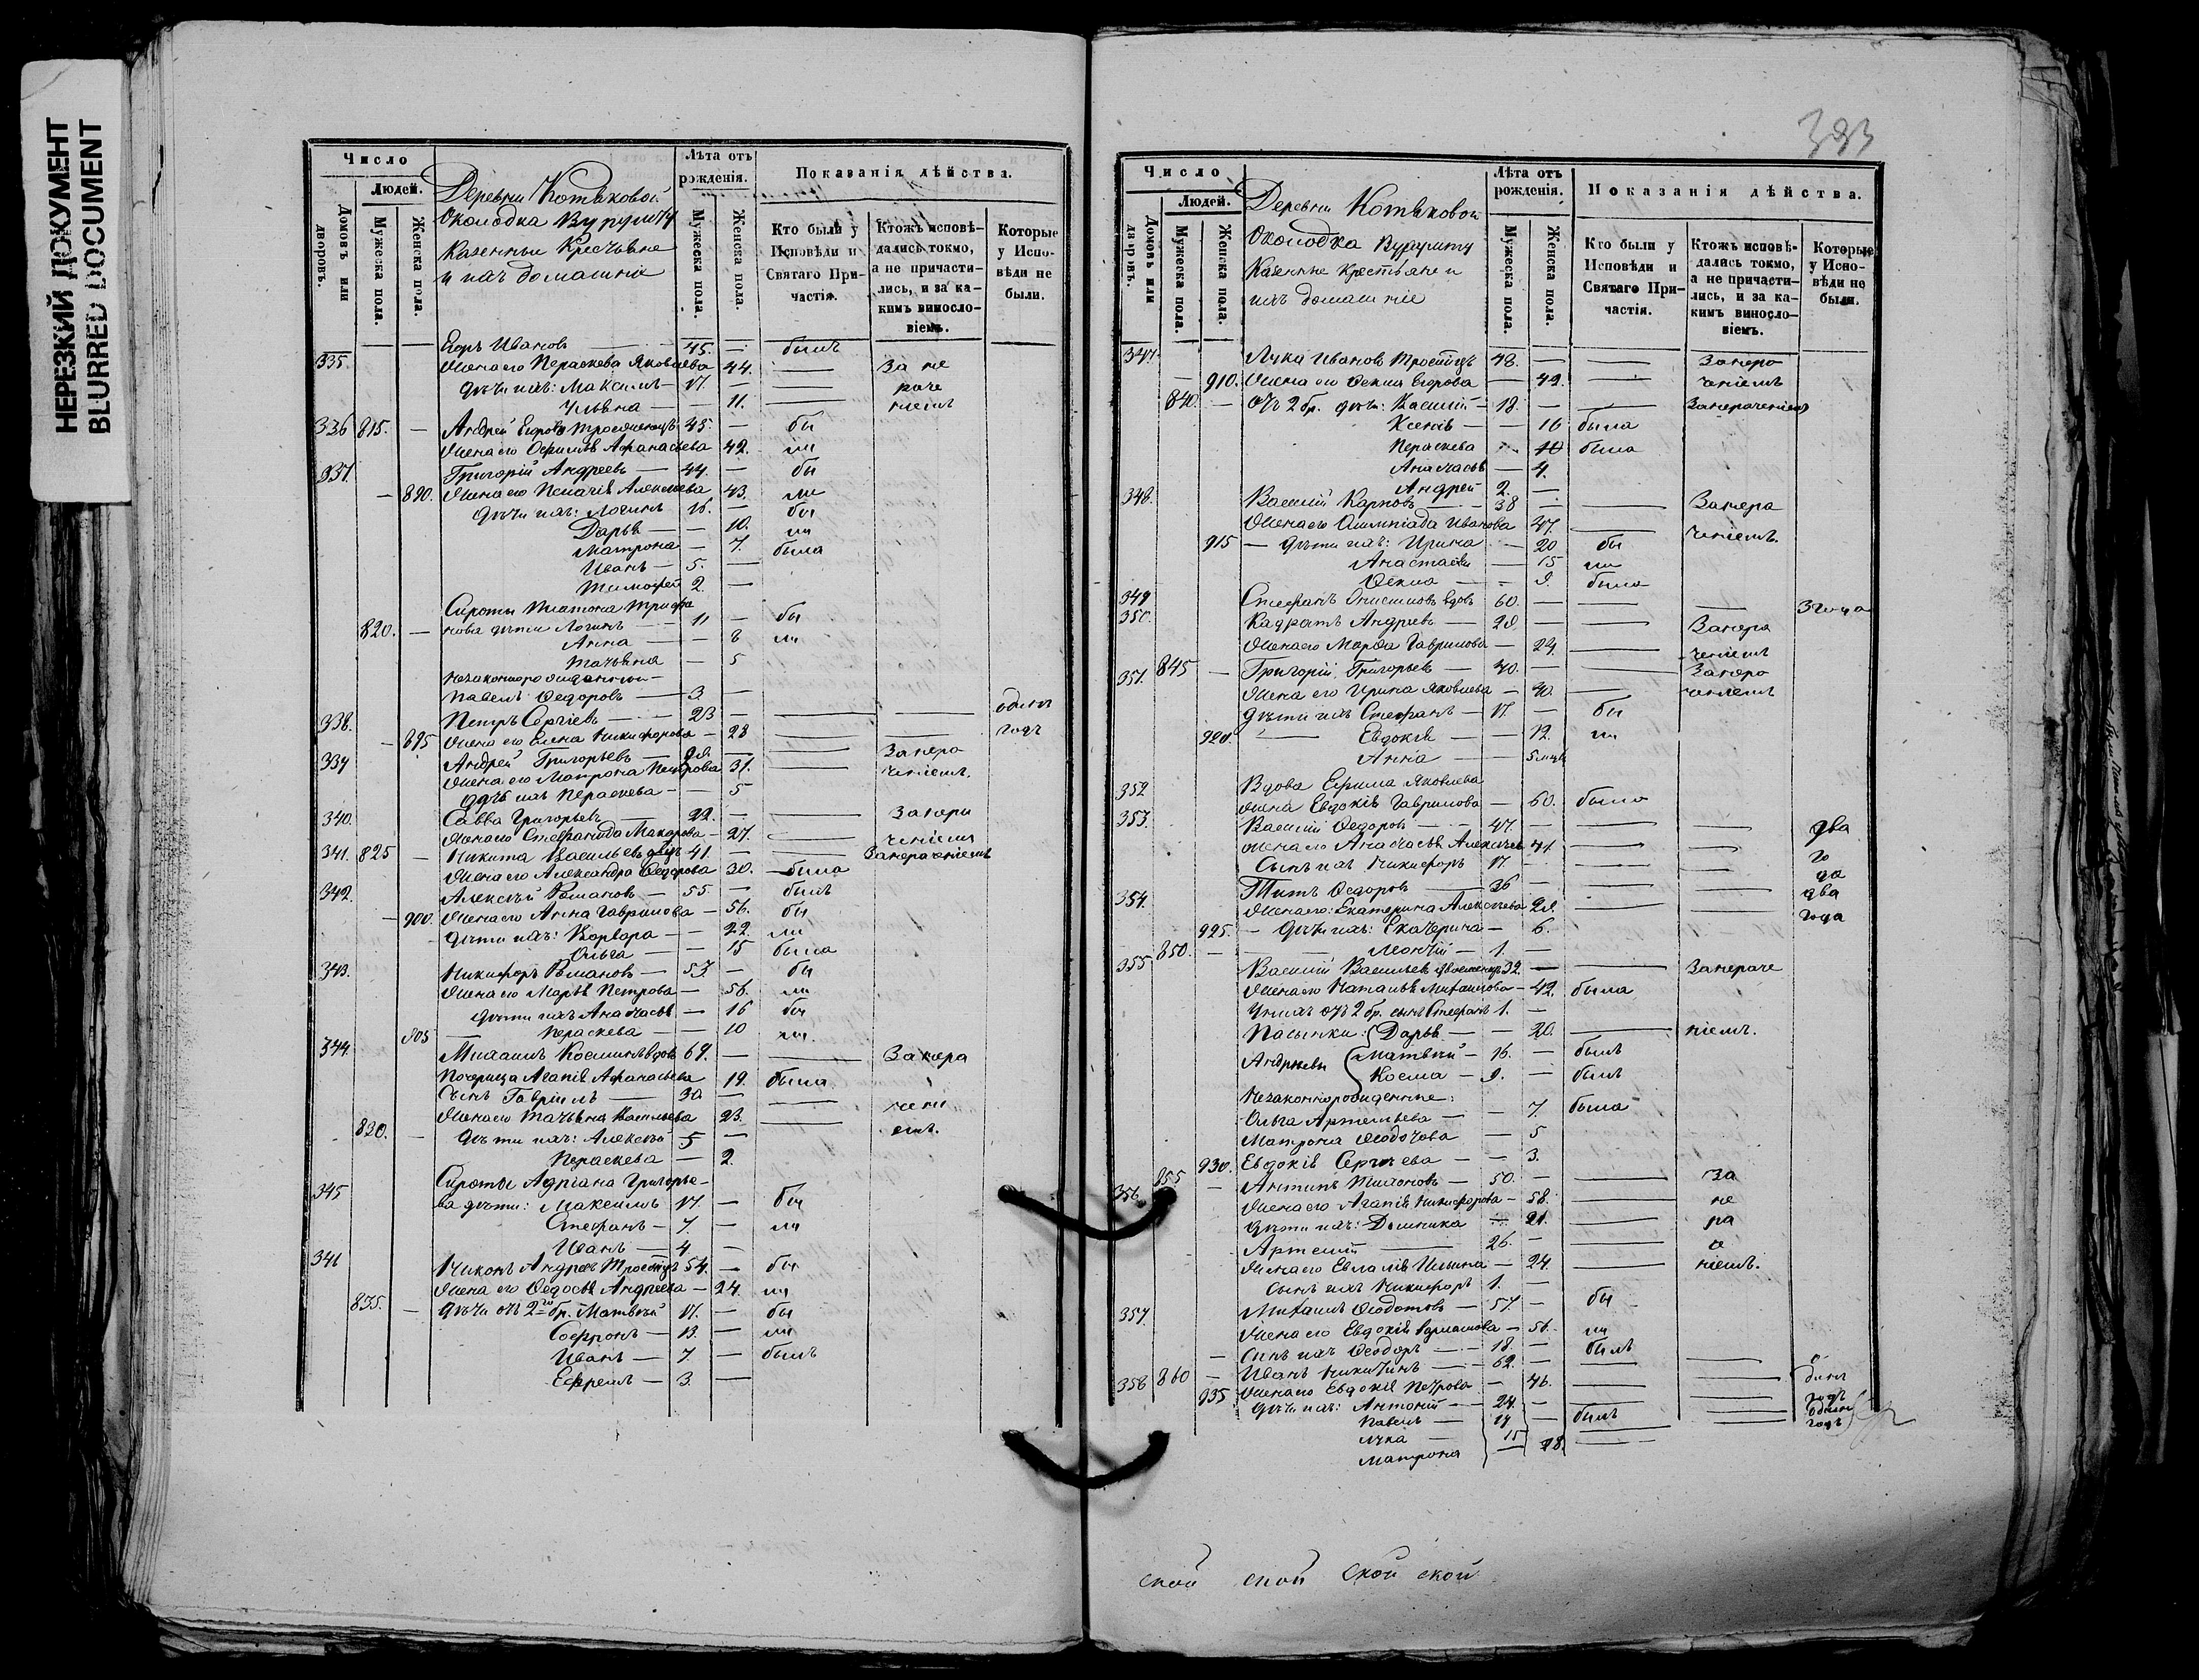 НЕРЕЗКИЙ ДОКУМЕНТ
BLURRED DOCUMENT
Число
Людей.
Домовъ или дворовъ.
Мужеска пола.
Женска пола.
Деревни Котяковой
Околодка Вурумту
Казенныи Крестьяне
и ихъ домашніе
Лѣта отъ рожденія.
Мужеска пола.
Женска пола.
Показанія дѣйства.
Кто были у Исповѣди и Святаго Причастія.
Ктожъ исповѣдались токмо, а не причастились, и за какимъ винословіемъ.
Которые у Исповѣди не были.
Егоръ Ивановъ — 45. — былъ
335. Жена его Параскева Яковлева 44. — За не
дѣти ихъ: Максимъ — 17. — — раче
Ульяна — 11. — ніемъ
336 815. — Андрей Егоровъ 45. — бы
Жена его Афанасьева 42. ли
337. Григорій Андреевъ — 44. — бы
— 890. Жена его Пелагія Алексеева 43. ли
дѣти ихъ: Логинъ — 16. — бы
Дарья — — 10. ли
Матрона — 7. была
Иванъ — 5. —
Тимофей 2. —
Сироты Платона Трифо
820. — нова дѣти Логинъ — 11 — бы
Анна — — 8 ли
Татьяна — 5
Незаконнорожденной
Павелъ Федоровъ — 3. —
338. Петръ Сергіевъ — 23 — — — одинъ
— 895 Жена его Елена Никифорова — 28 — — годъ
339 Андрей Григорьевъ — 28. — — Занера
Жена его Матрона Петрова 31. — ченіемъ.
дочь ихъ Параскева — 5
340. Савва Григорьевъ — 22. — — Занера
Жена его Стефанида Макарова — 27. — ченіемъ
341. 825 — Никита Васильевъ 41. — — Занераченіемъ
Жена его Александра Федорова 30. — была
342. Алексѣй Романовъ — 55 — былъ
— 900. Жена его Анна Гаврилова — 56. бы
дѣти ихъ: Варвара — — 22. ли
Ольга — — 15 была
343. Никифоръ Романовъ — 53 — бы
Жена его Марья Петрова — 56. ли
дѣти ихъ Анастасья — 16 бы
905 — Параскева — — 10 ли.
344. Михаилъ Косминъ вдовъ 69. — — Занера
Агапія Афанасьева 19. была
Сынъ Гавріилъ — 30 — — чені
Жена его Татьяна Васильева 23. — емъ.
830. — дѣти ихъ: Алексѣй 5 —
Параскева — 2.
Сироты Адріана Григорье-
345 ва дѣти: Максимъ 17. — бы
Стефанъ — 7 — ли
Иванъ — 4. —
346 Никонъ Андреевъ 54. — бы
Жена его Федосья Андреева — 24. ли
835. — Дѣти отъ 2го бр. Матвѣй 17. — бы
Софронъ — 13. — ли
Иванъ — 7. — былъ
Ефремъ — 3. —
393
Число
Людей.
Домовъ или дворовъ.
Мужеска пола.
Женска пола.
Деревни Котяковой
Околодка Вурумту
Казенные Крестьяне и
ихъ домашніе
Лѣта отъ рожденія.
Мужеска пола.
Женска пола.
Показанія дѣйства.
Кто были у Исповѣди и Святаго Причастія.
Ктожъ исповѣдались токмо, а не причастились, и за какимъ винословіемъ.
Которые у Исповѣди не были.
347. Лука Ивановъ 48. — — Занера
910. Жена его Фекла Егорова — 49. — ченіемъ
840. — Отъ 2 бр. дѣти: Василій — 18. — — Занераченіемъ
Ксенія — — 16 была
Параскева — 10 была
Анастасья — 4.
Андрей 2. —
348. Василій Карповъ — 38 — — Занера
Жена его Олимпіада Иванова 47. — ченіемъ.
915 — дѣти ихъ: Ирина — 20 бы
Анастасія — 15 ли
Фекла — — 9. была
349 Стефанъ Онисимовъ вдовъ 60. — — — 3 года
350. Кадратъ Андреевъ — 28. — — Занера
Жена его Марфа Гаврилова — 24 — ченіемъ
351. 845 — Григорій Григорьевъ — 40. — — Занера
Жена его Ирина Яковлева — 40. — ченіемъ
дѣти ихъ Стефанъ — 17. — бы
920. — Евдокія — — 12. ли
Анна — — 5 мцъ
352 Вдова Ефима Яковлева
жена Евдокія Гаврилова — 60. была
353. Василій Федоровъ — 47. — — — два
Жена его Анастасья 41. — — го
Сынъ ихъ Никифоръ 17. — — — да
354. Титъ Федоровъ — 36 — — — два
Жена его: Екатерина Алексѣева 28. — — года
925. — Дѣти ихъ: Екатерина — 6.
850. — Леонтій — 1. —
355 Василій Васильевъ 32. — — Занераче
Жена его Наталья Михайлова — 42. была
У нихъ отъ 2 бр. сынъ Стефанъ 1. —
Пасынки: Дарья — — 20. — ніемъ.
Андреевы Матвѣй — 16. — былъ
Косма — 9. — былъ
Незаконнорожденные:
Ольга Артемьева — — 7. была
Матрона Феодотова — 5
930. Евдокія Сергѣева — — 3.
356 855 — Антипъ Тихоновъ — 50. — — За
Жена его Агапія Никифорова — 58. — не
дѣти ихъ: Домника — 21. — ра
Артемій — 26. —
Жена его Евлалія Ильина — 24. — ніемъ.
Сынъ ихъ Никифоръ 1. —
357. Михаилъ Феодотовъ — 57. — бы
Жена его Евдокія — 56. ли
— Сынъ ихъ Феодоръ — 18. — былъ
358 860 — Иванъ Никитинъ — 62. — — — о
935 Жена его Евдокія Петрова — 46. — — динъ
Дѣти ихъ: Антоній — 24. — — годъ
Павелъ — 17 — былъ — одинъ
Лука — 15 — — годъ
Матрона — 18. —
ской ской ской ской